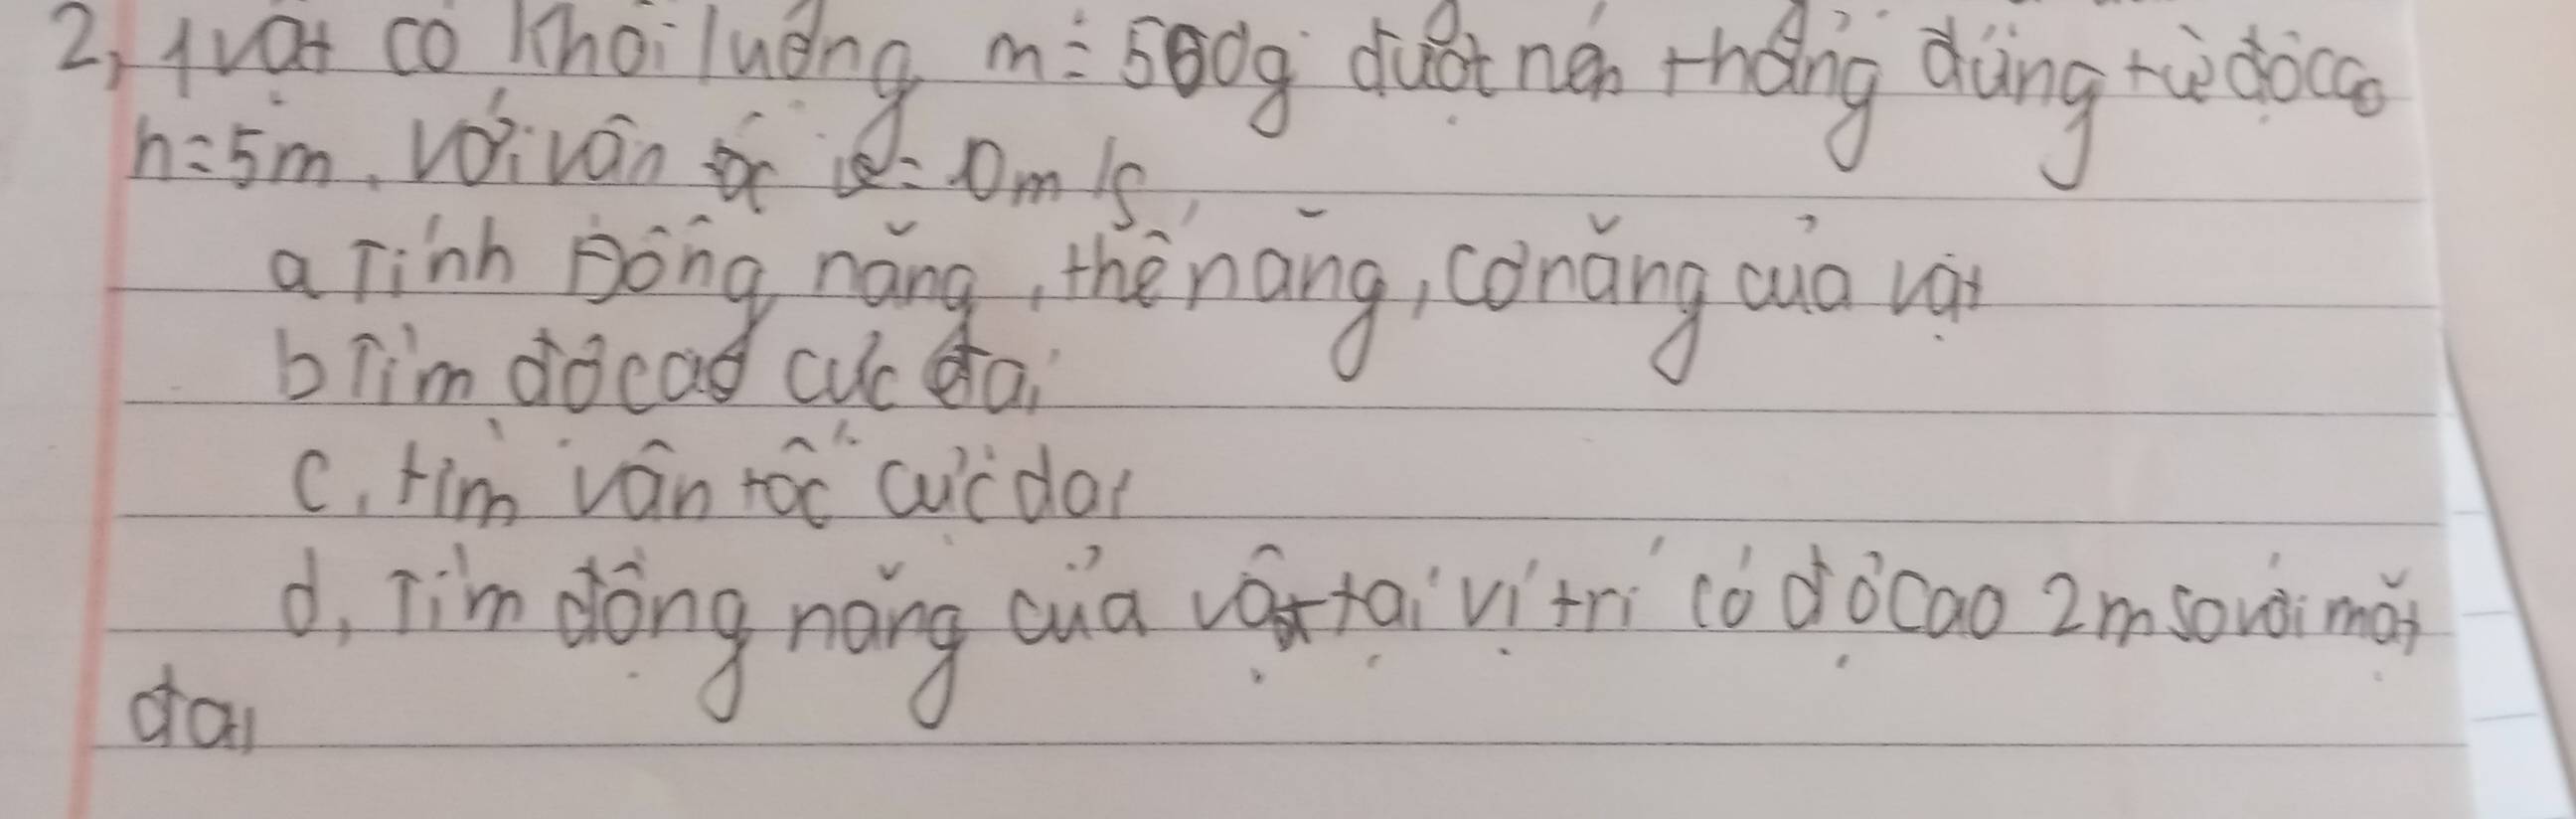 2, 1 vật có khối lượng m = 500g được ném thẳng đứng từ độ cao
h = 5m. Với vận tốc v = 10m/s,
a Tính Động năng, thế năng, cơ năng của vật
b Tìm độ cao cực đại
c, tìm vận tốc cực đại
d, Tìm động năng của vật tại vị trí có độ cao 2m so với mặt
đất